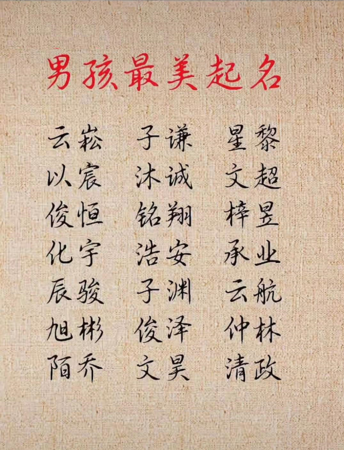 男孩最美起名
云崧 子谦 星黎
以宸 沐诚 文超
俊恒 铭翔 梓昱
化宇 浩安 承业
辰骏 子渊 云航
旭彬 俊泽 仲林
陌乔 文昊 清政